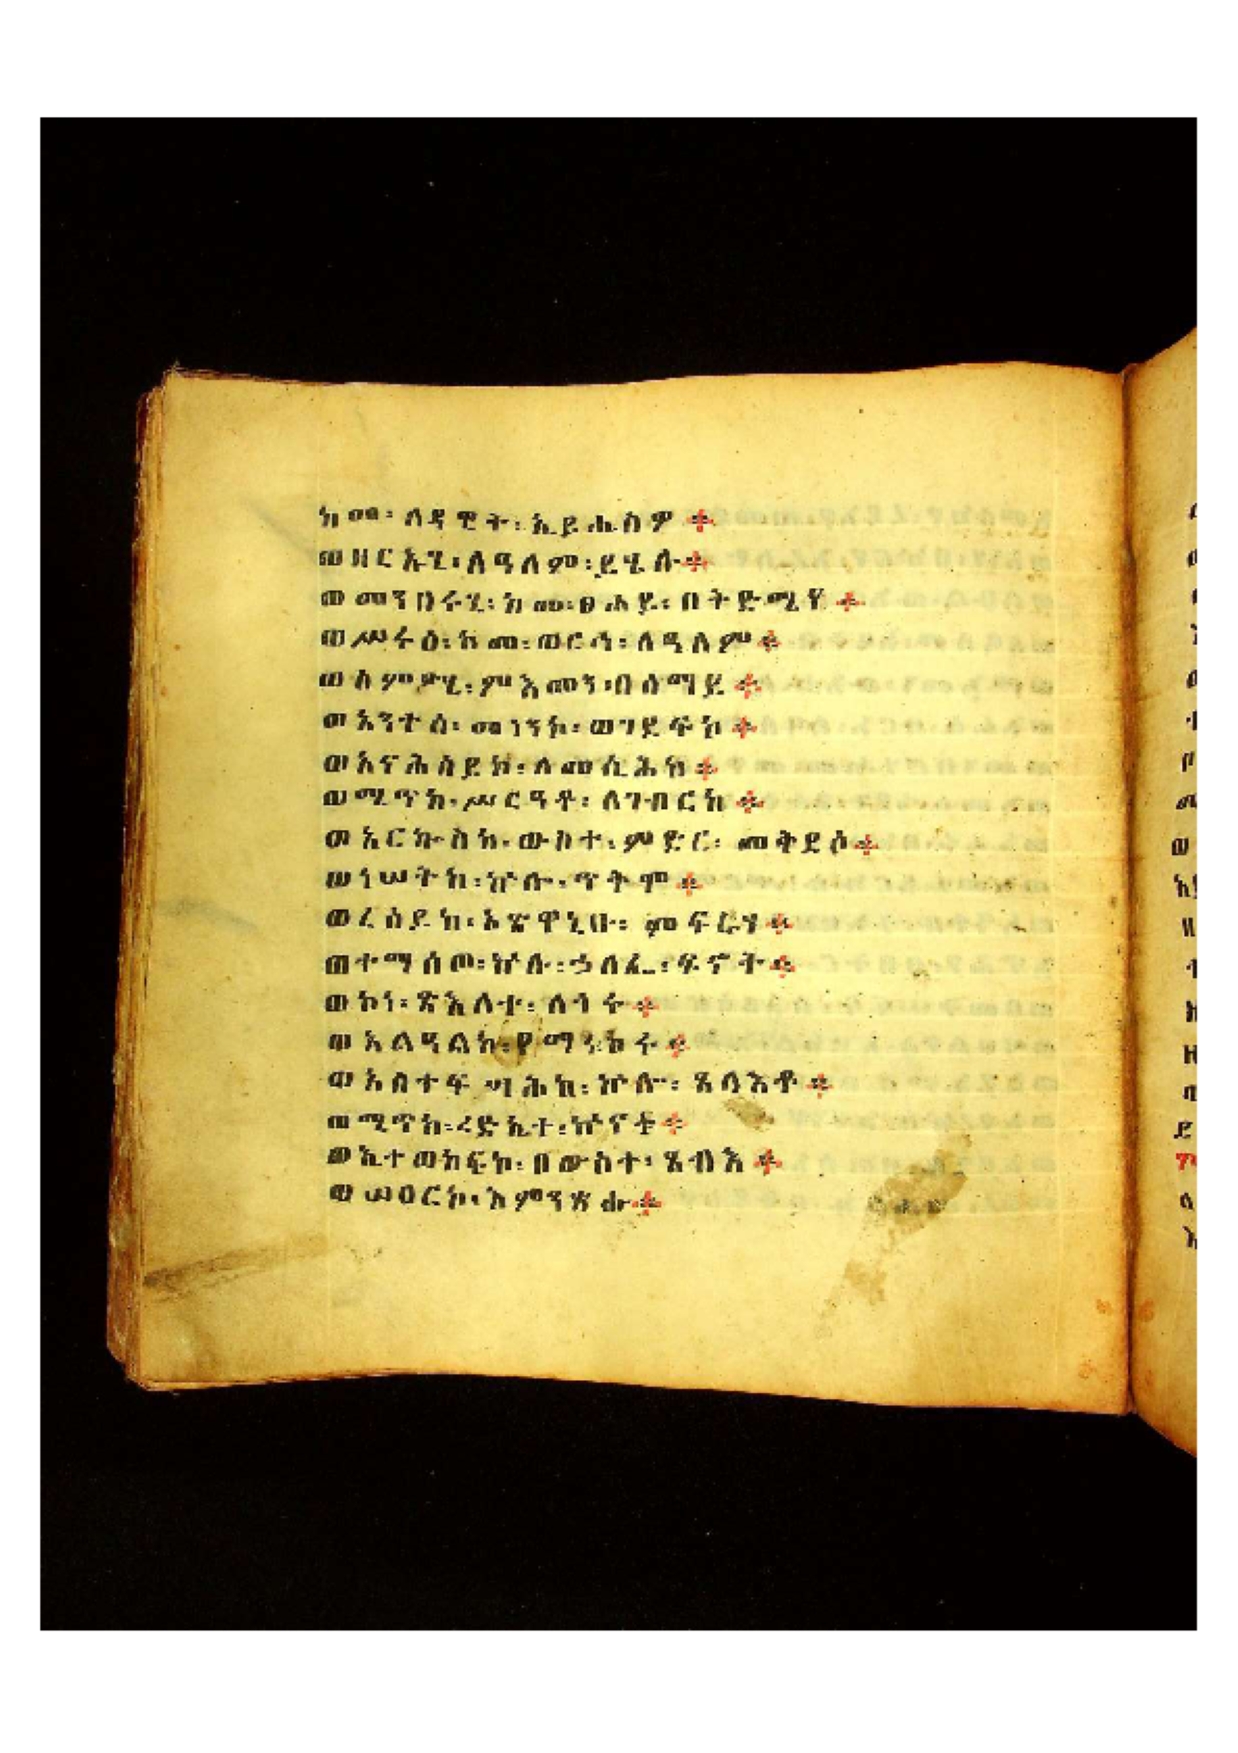 ከመ፡ ለዳዊት፡ ኢይሔስዎ ።
ወዘርኡሂ፡ ለዓለም፡ ይሄሉ ።
ወመንበሩሂ፡ ከመ፡ ፀሐይ፡ በቅድሜየ ።
ወሥሩዕ፡ ከመ፡ ወርኅ፡ ለዓለም ።
ወስምዖሂ፡ ምእመን፡ በሰማይ ።
ወአንተሰ፡ መነንከ፡ ወገደፍከ ።
ወአናሕሰይከ፡ ለመሲሕከ ።
ወሚጥከ፡ ሥርዓቶ፡ ለገብርከ ።
ወአርኰስከ፡ ውስተ፡ ምድር፡ መቅደሶ ።
ወነሠትከ፡ ኵሎ፡ ጥቅሞ ።
ወረሰይከ፡ አጽዋኒሁ፡ መፍርሃ ።
ወተማሰጦ፡ ኵሉ፡ ኃላፌ፡ ፍኖት ።
ወኮነ፡ ጽእለተ፡ ለጎሩ ።
ወአልዓልከ፡ የማነ፡ ከሩ ።
ወአስተፍሣሕከ፡ ኵሎ፡ ጸላእቶ ።
ወሚጥከ፡ ረድኤተ፡ ኵናቱ ።
ወኢተወከፍኮ፡ በውስተ፡ ጸብእ ።
ወሠዐርኮ፡ እምንጽሑ ።